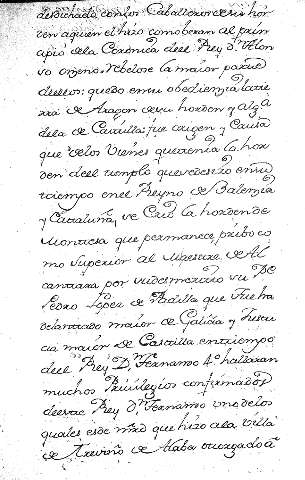 desdichada con los Caballeros de su hor
den a quien el hizo como beran al prin
cipio de la Coronica del Rey Dn Alon
so onzeno rebelose la maior parte
dellos: quedo en su obedienzia la tie
rra de Aragon de su horden y alza
dela de Castilla: fue origen y Causa
que de los vienes que tenia la hor
den del templo que sedieron en su
tiempo en el Reyno de Balenzia
y Cataluña, se Crio la horden de
Montesa que permanece, por
mo superior al Maestre de Al
cantara por
Pedro Lopez de Padilla que fue ha
delantado maior de Galicia y Justi
cia maior de Castilla en tiempo
del Rey Dn Fernando 4º hallaran
muchos Privilegios confirmados
deste Rey Dn Fernando uno de los
quales es de mrd que hizo a la Villa
de Treviño de Alaba otorgado a